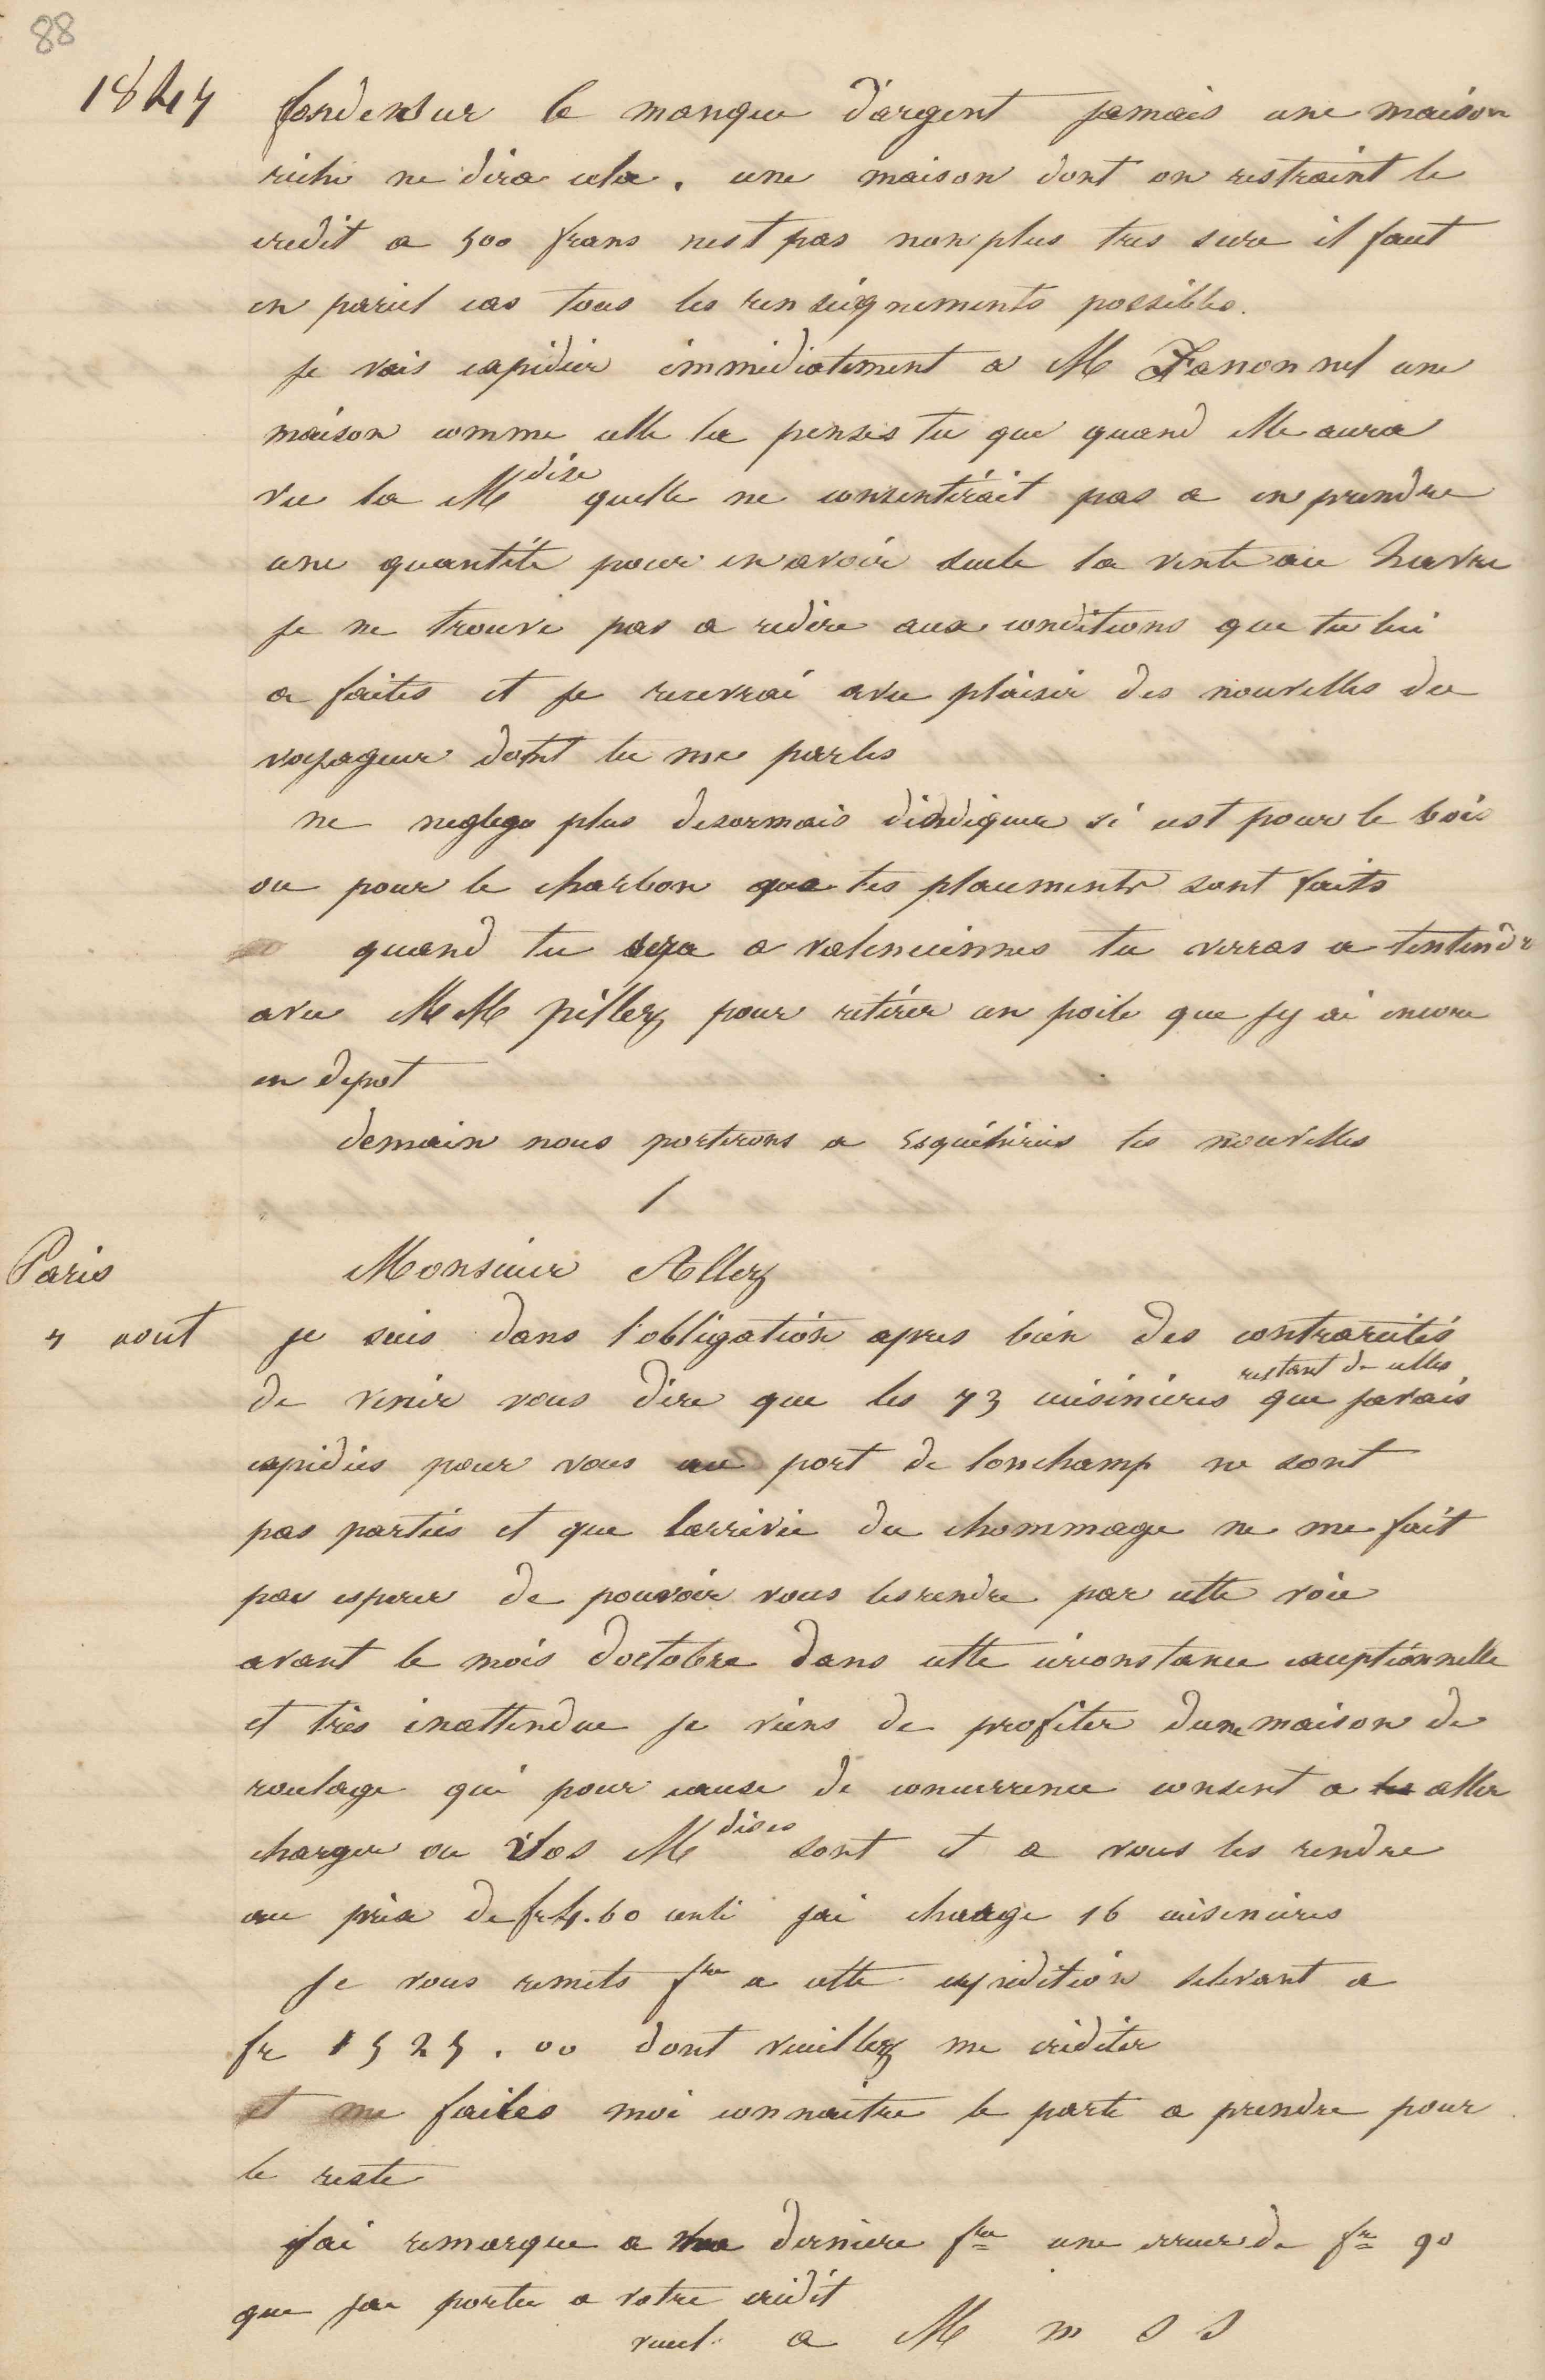 88
1847 fonder sur le manque d'argent jamais une maison
riche ne dira cela. une maison dont on restraint le
credit a 500 frans nest pas non plus tres sure il faut
en pariel cas tous les renseignements possibles.
je vais expedier immediatement a M une
maison comme celle la penses tu que quand elle aura
vu la Mdise quelle ne consentirait pas a en prendre
une quantité pour en avoir seule la vente au havre
je ne trouve pas a redire aux conditions que tu lui
a faites et je recevrai avec plaisir des nouvelles du
voyageur dont tu me parles
ne neglege plus desormais dindiquer si cest pour le bois
ou pour le charbon que tes placements sont faits
quand tu sera a valenciennes tu verras a tentendre
avec MM pillez pour retirer un poile que jy ai encore
en depot
demain nous porterons a Esquéhéries tes nouvelles
/
Paris Monsieur Allez
7 aout je suis dans l'obligation apres bien des contrarietés
de venir vous dire que les 73 cuisinieres restant de celles que javais
expediés pour vous au port de lonchamp ne sont
pas parties et que larrivée du chommage ne me fait
pas esperer de pouvoir vous les rendre par cette voie
avant le mois doctobre dans cette circonstance exceptionnelle
et très inattendue je viens de profiter dune maison de
roulage qui pour cause de concurrence consent a les aller
charger ou vos Mdises sont et a vous les rendre
au prix de fr 4.60 centi jai charge 16 cuisinieres
Je vous remets fre a cette expedition selevant a
fr 1525.00 dont veuillez me crediter
et me faites moi connaitre le parte a prendre pour
le reste
jai remarque a ma derniere fre une erreur de fr 90
que jai portee a votre crédit
veuil. a M m s s